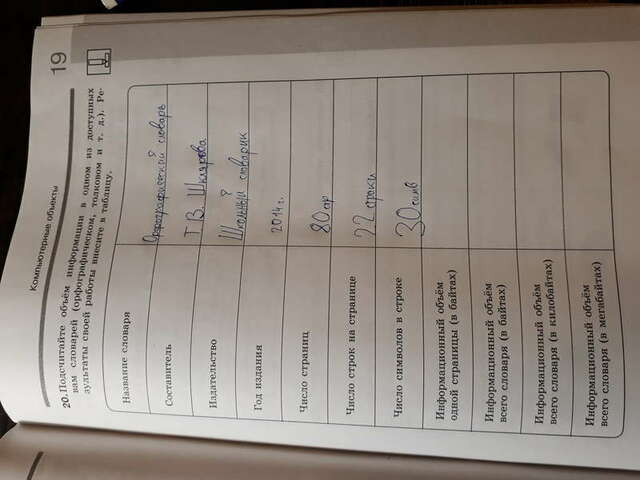 Компьютерные объекты
19
20. Подсчитайте объём информации в одном из доступных
вам словарей (орфографическом, толковом и т. д.). Ре-
зультаты своей работы внесите в таблицу.
Название словаря
Орфографический словарь
Составитель
Т.В. Шклярова
Издательство
словарик
Год издания
2014 г.
Число страниц
80 стр
Число строк на странице
22 строки
Число символов в строке
30 симв
Информационный объём
одной страницы (в байтах)
Информационный объём
всего словаря (в байтах)
Информационный объём
всего словаря (в килобайтах)
Информационный объём
всего словаря (в мегабайтах)